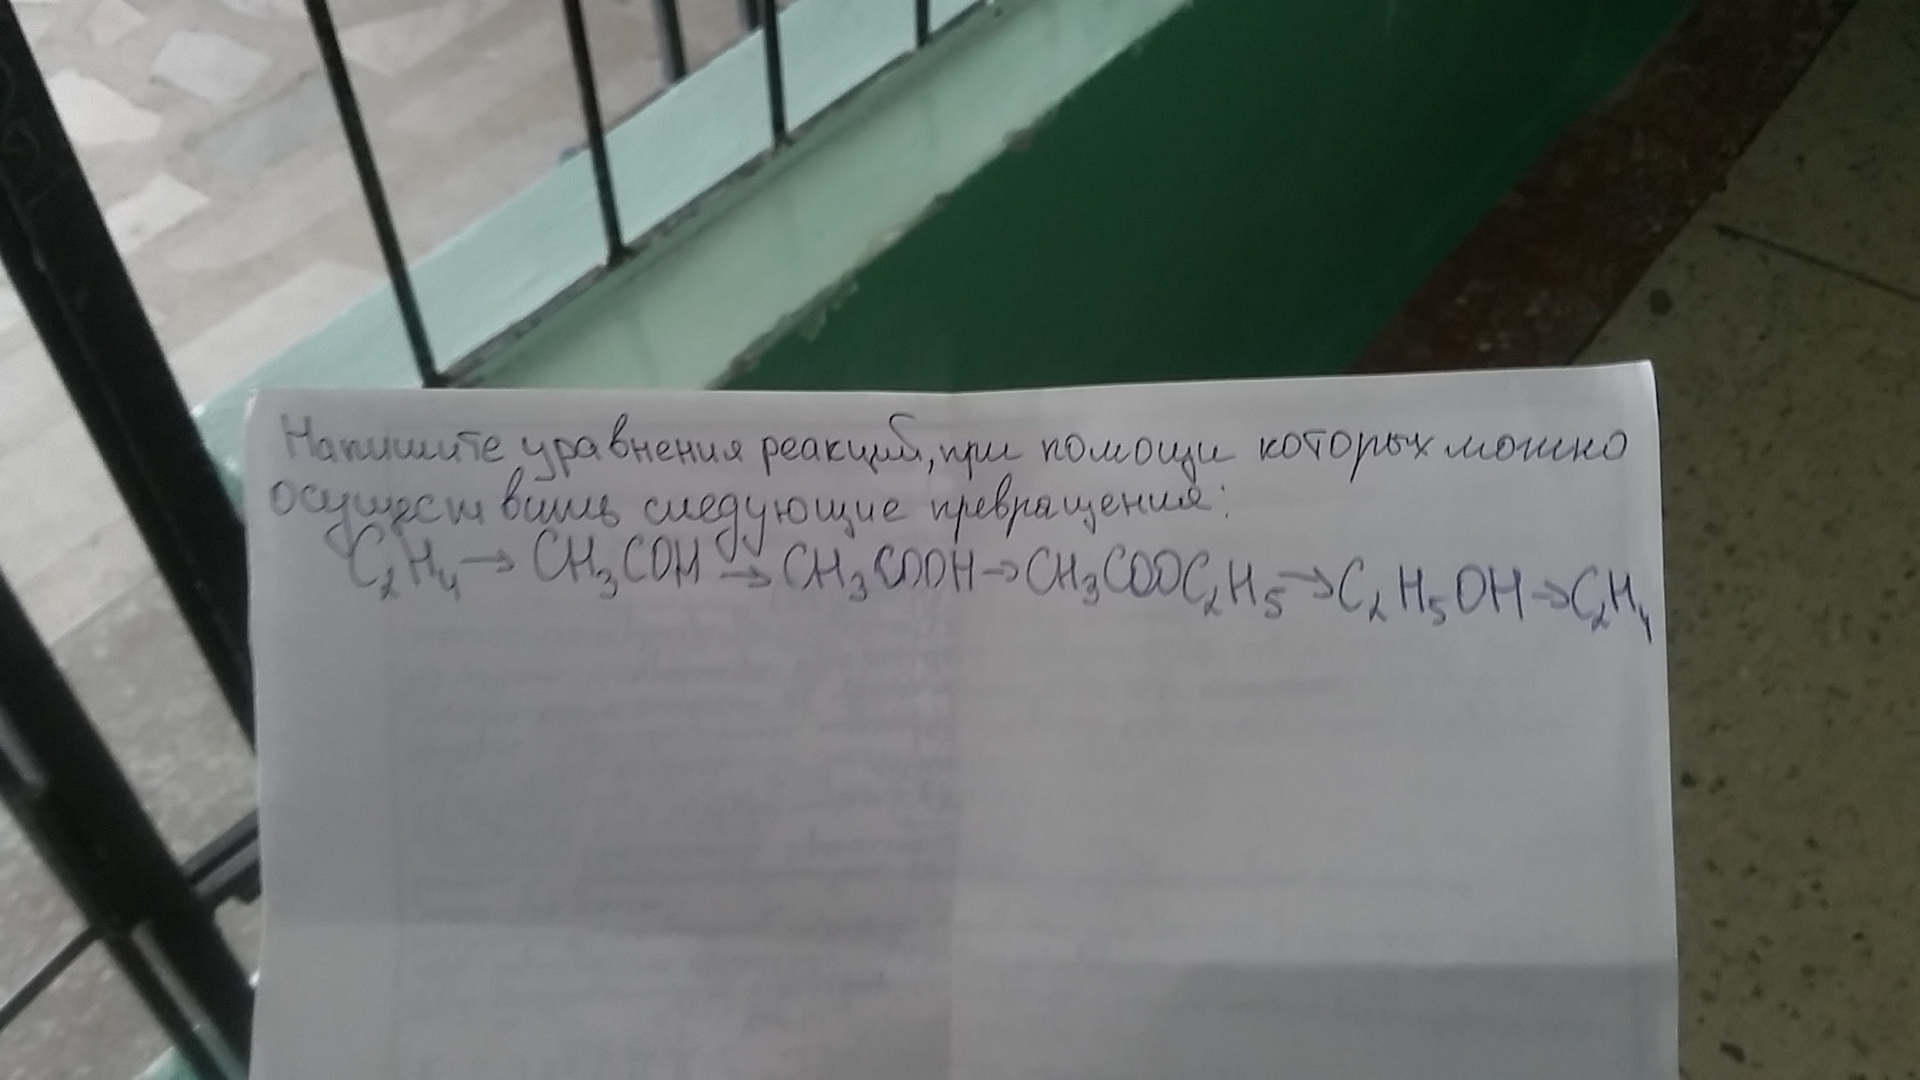 Напишите уравнения реакций, при помощи которых можно
осуществить следующие превращения:
C₂H₄ → CH₃COH → CH₃COOH → CH₃COOC₂H₅ → C₂H₅OH → C₂H₄